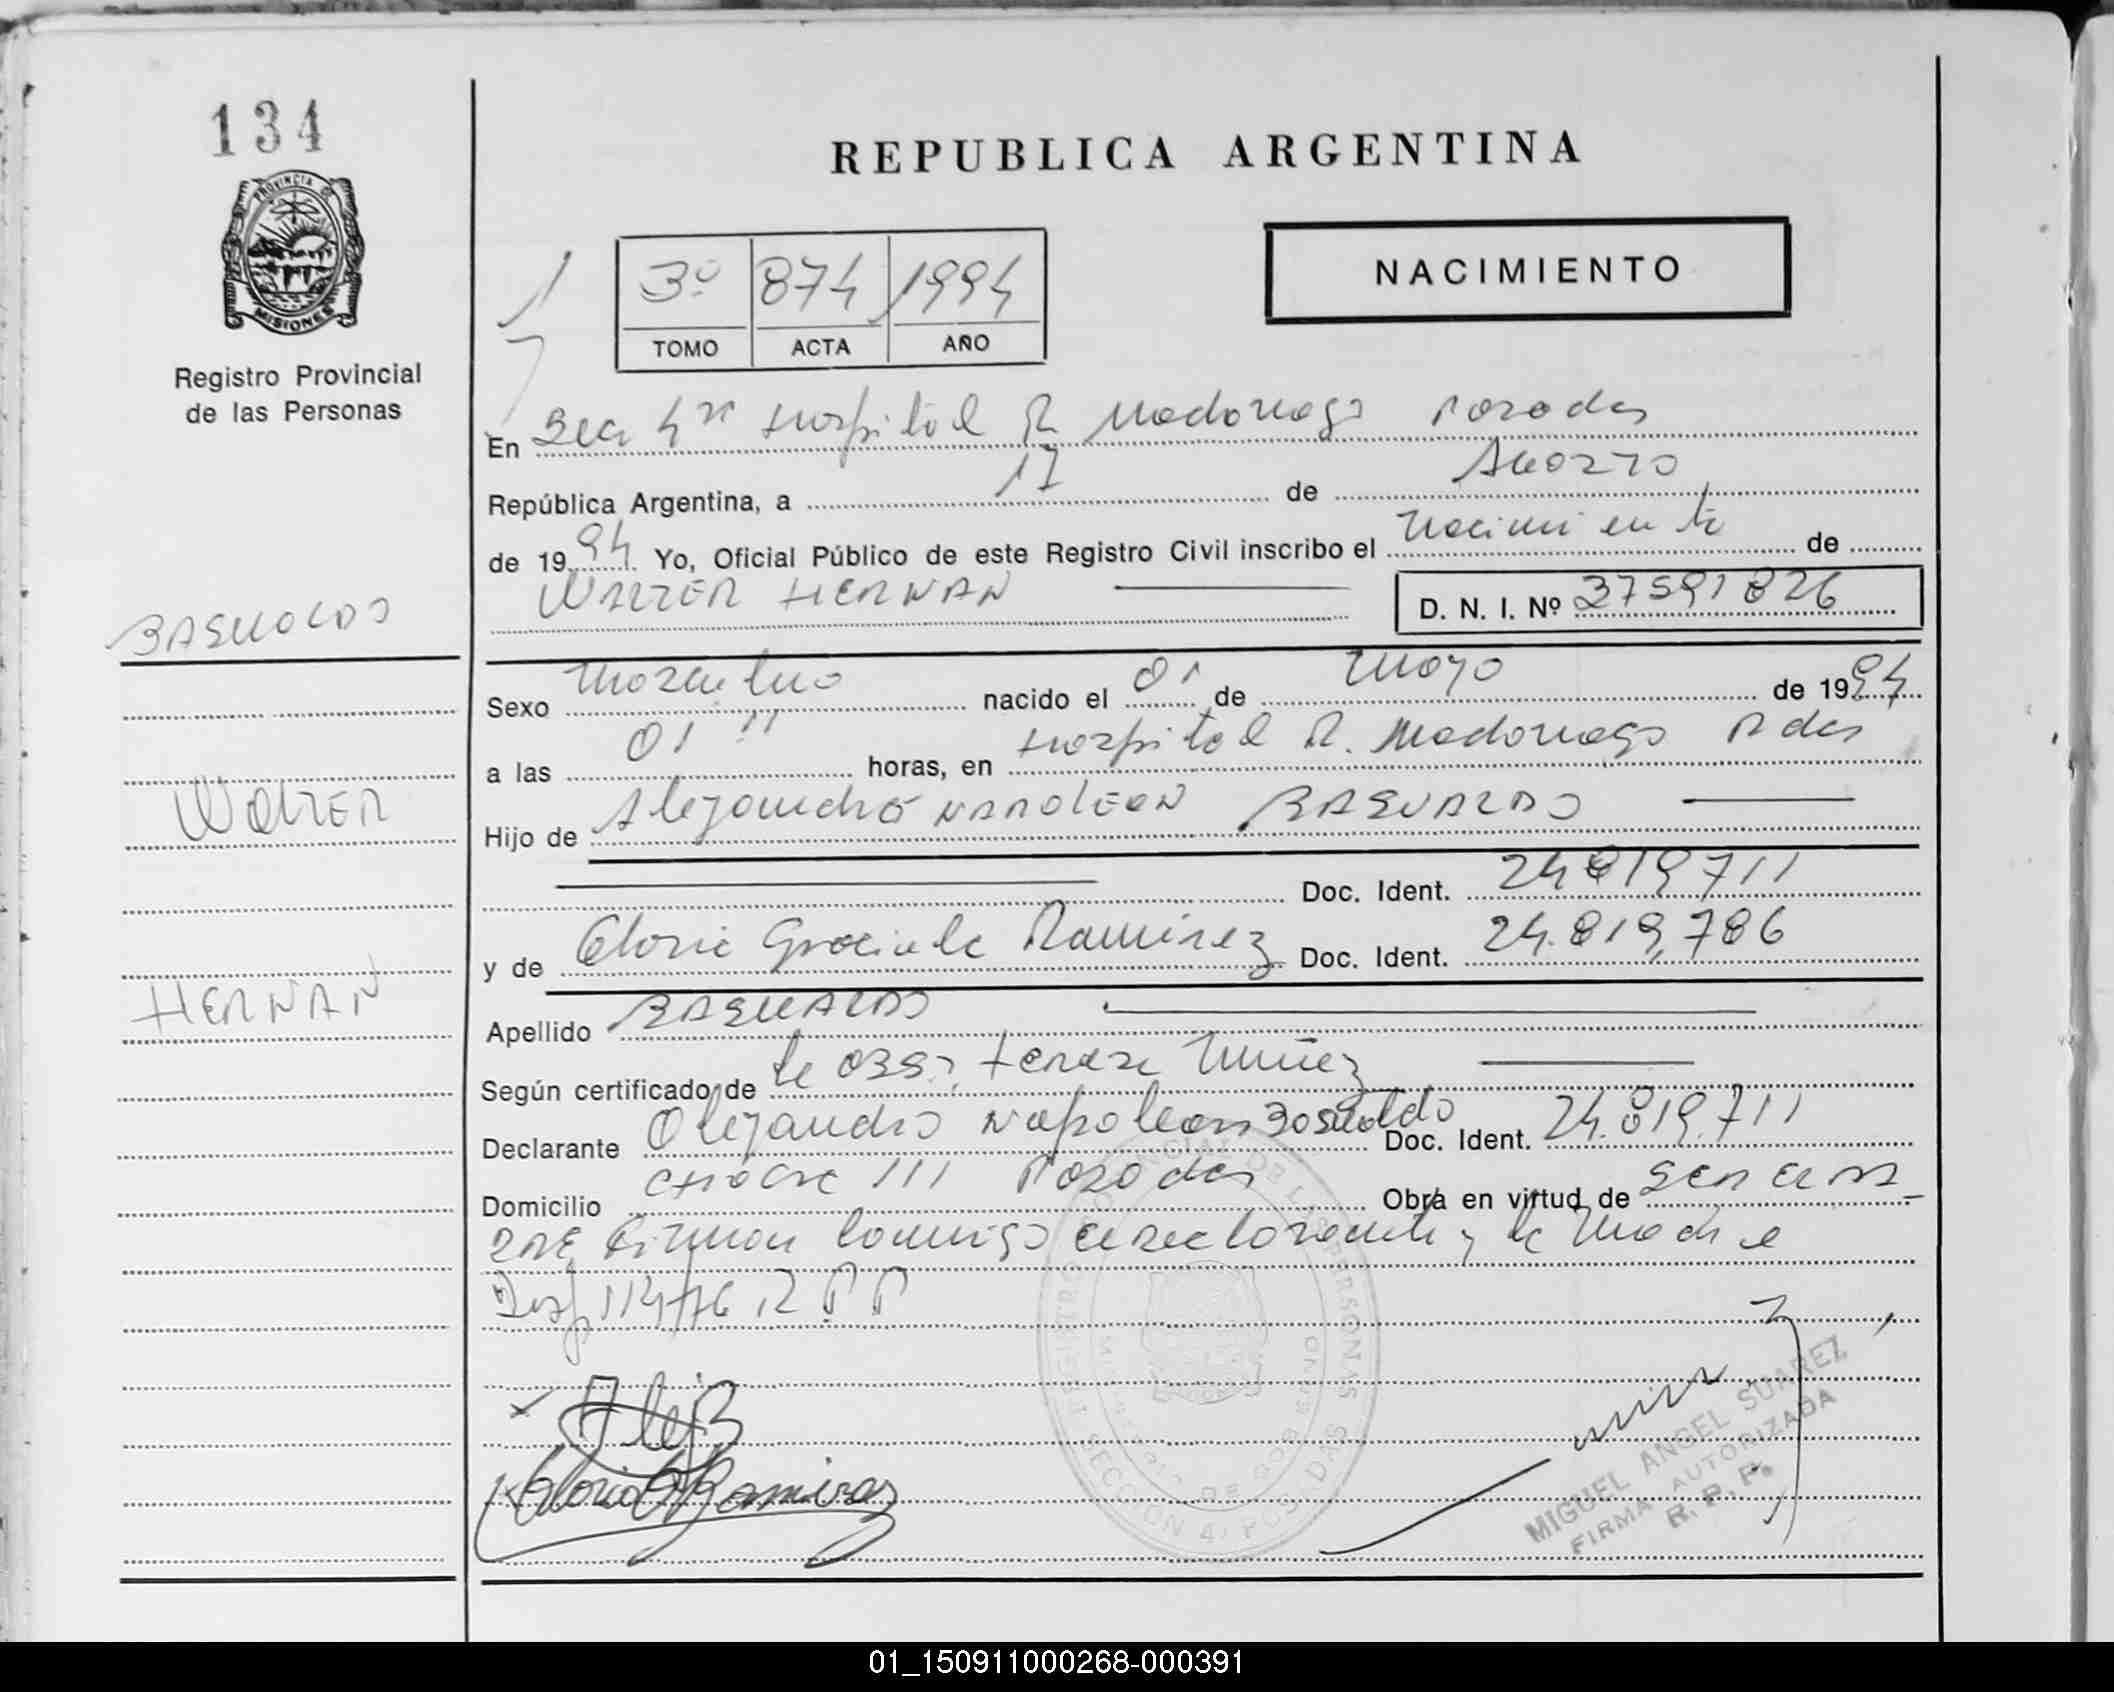 134
PROVINCIA DE
MISIONES
Registro Provincial
de las Personas
REPUBLICA ARGENTINA
3º 874 1994
TOMO ACTA AÑO
NACIMIENTO
En Sec 4ta Hospital R Madariaga Posadas
República Argentina, a 17 de Agosto
de 1994 Yo, Oficial Público de este Registro Civil inscribo el Nacimiento de
WALTER HERNAN D. N. I. Nº 37591826
BASUALDO
Sexo Masculino nacido el 01 de Mayo de 1994
a las 01 horas, en Hospital R. Madariaga Pdas
WALTER
Hijo de Alejandro NAPOLEON BASUALDO
Doc. Ident. 24819711
y de Gloria Graciela Ramirez Doc. Ident. 24.819.786
HERNAN
Apellido BASUALDO
Según certificado de la Obst. Teresa Nuñez
Declarante Alejandro Napoleon Basualdo Doc. Ident. 24.819.711
Domicilio Chacra 111 Posadas Obra en virtud de ser el pa-
dre Firman conmigo el declarante y la madre
Disp 114/76 R P P
Alej B
Gloria G Ramirez
REGISTRO PROVINCIAL DE LAS PERSONAS
MINISTERIO DE GOBIERNO
SECCION 4º POSADAS
MIGUEL ANGEL SUAREZ
FIRMA AUTORIZADA
R. P. P.
01_150911000268-000391